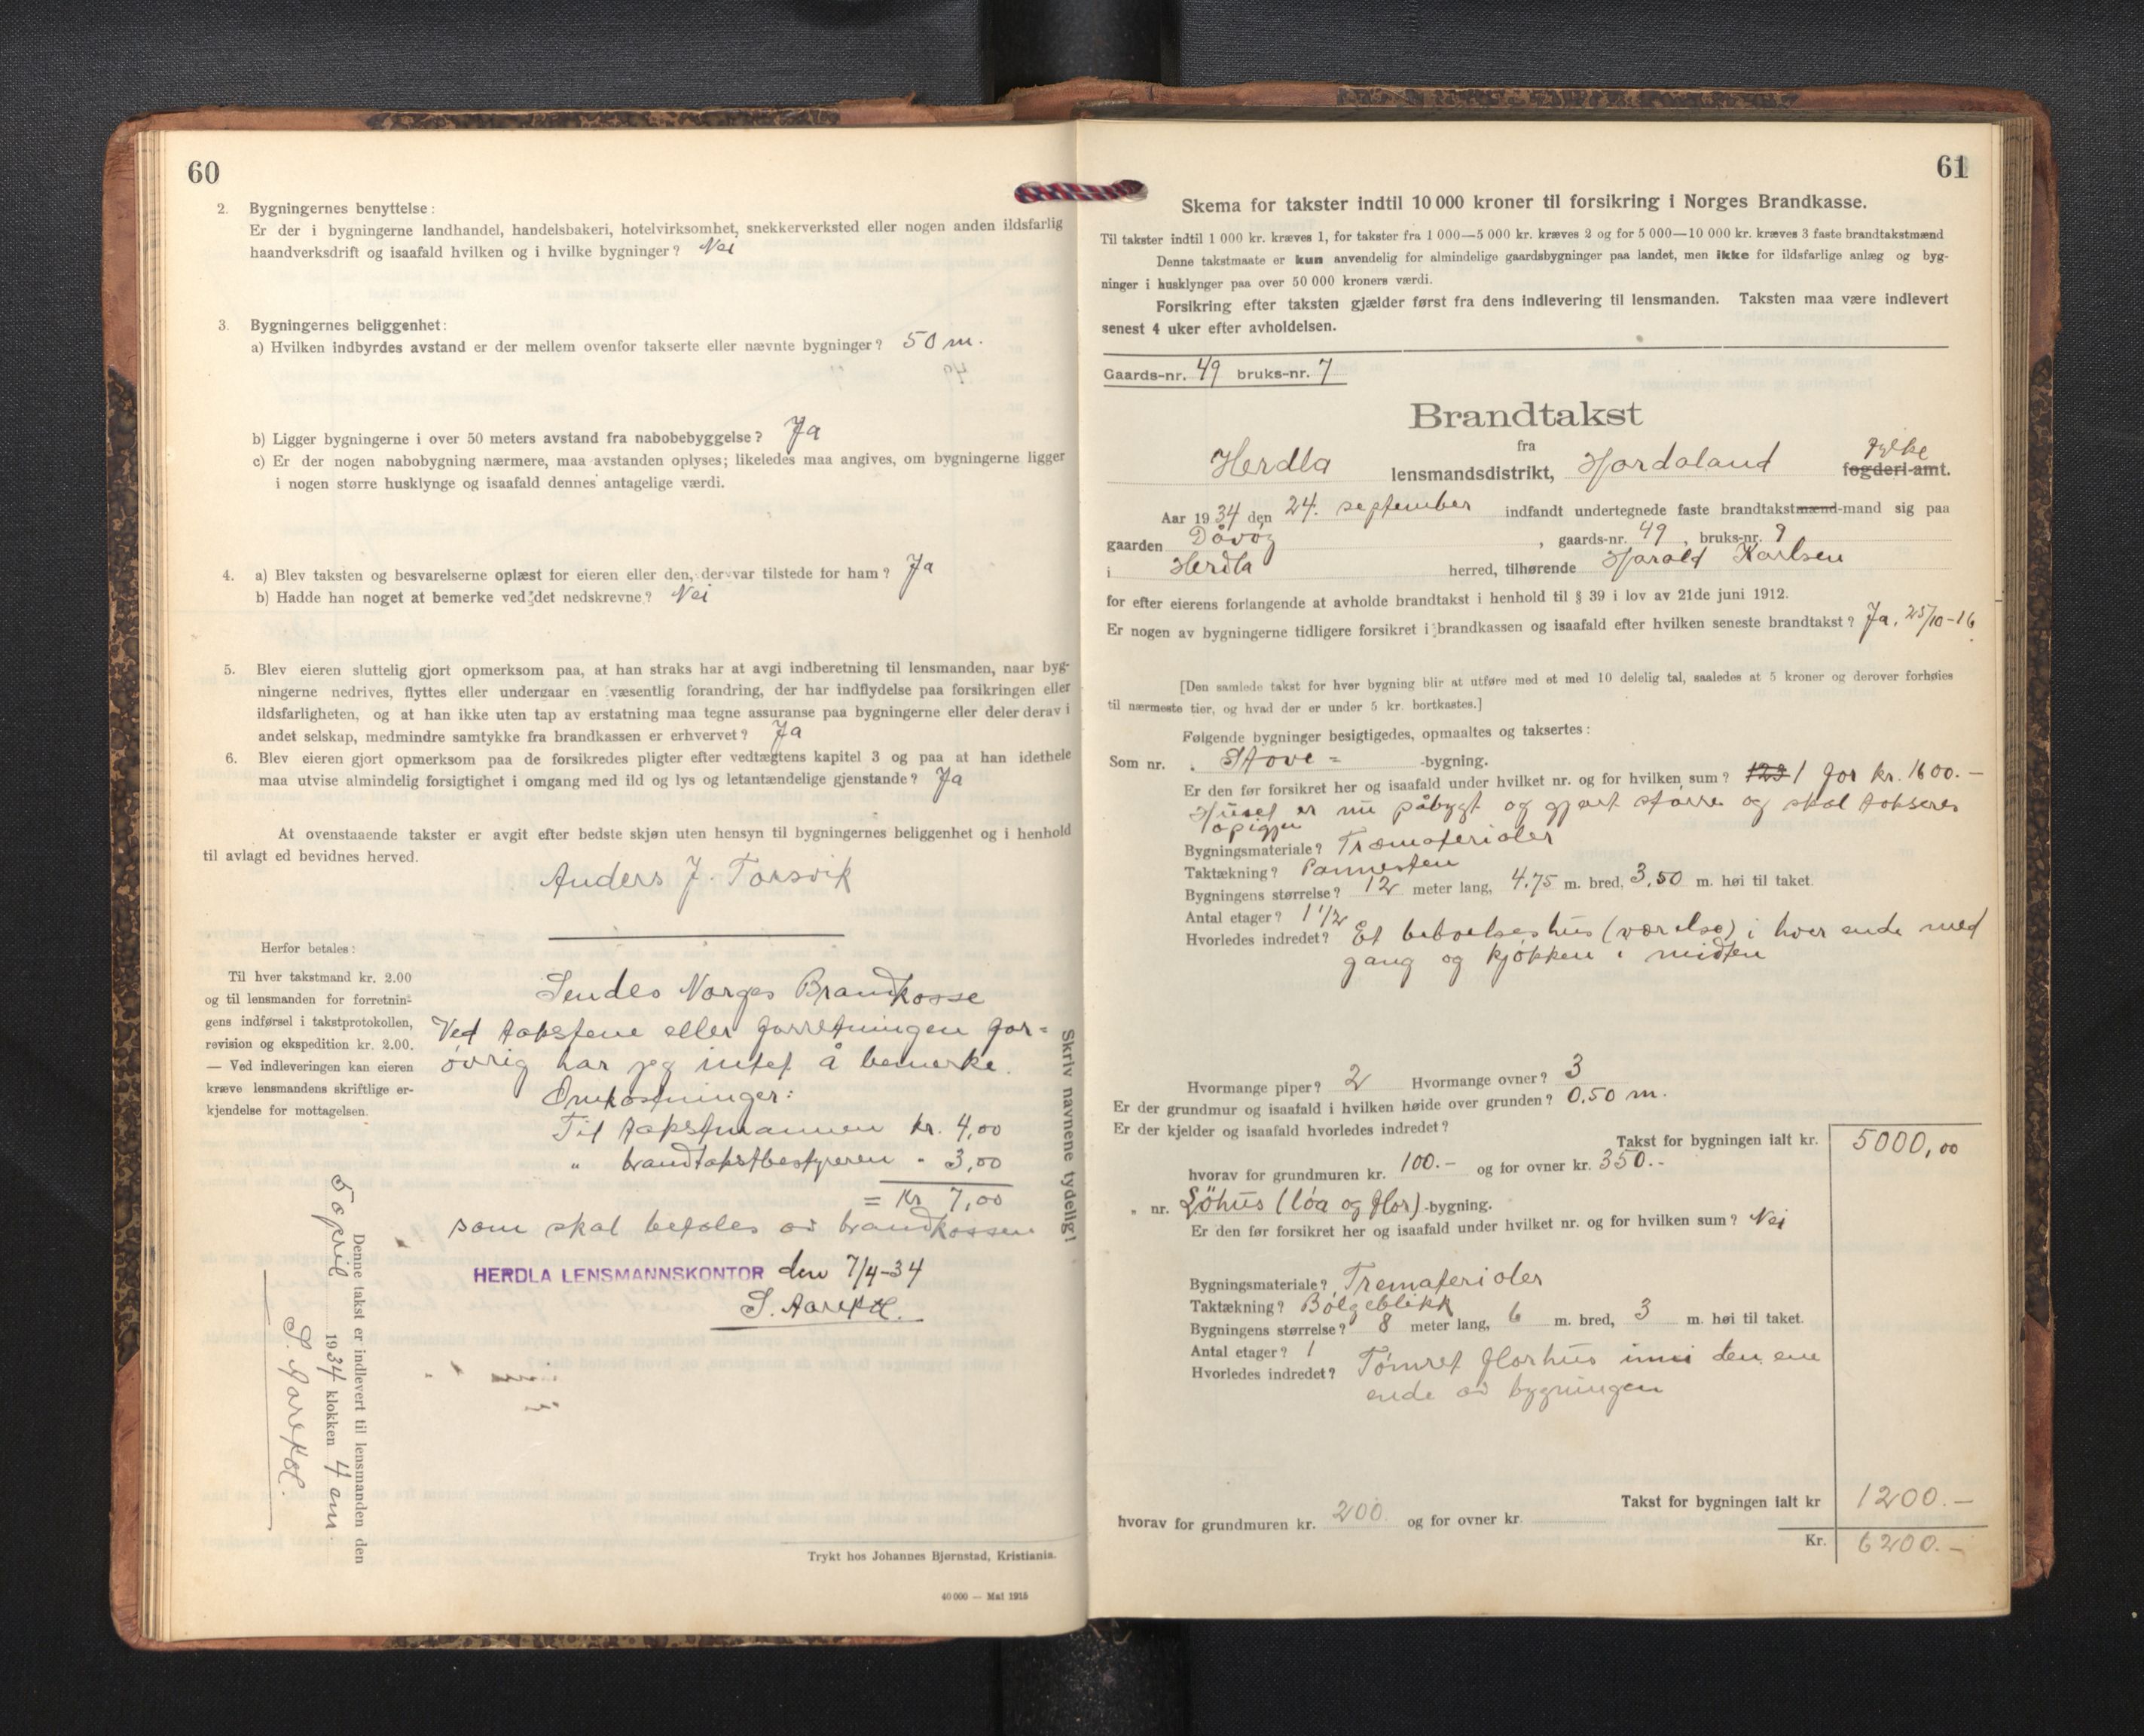 60
2. Bygningernes benyttelse:
Er der i bygningerne landhandel, handelsbakeri, hotelvirksomhet, snekkerverksted eller nogen anden ildsfarlig
haandverksdrift og isaafald hvilken og i hvilke bygninger? Nei
3. Bygningernes beliggenhet:
a) Hvilken indbyrdes avstand er der mellem ovenfor takserte eller nævnte bygninger? 50 m.
b) Ligger bygningerne i over 50 meters avstand fra nabobebyggelse? Ja
c) Er der nogen nabobygning nærmere, maa avstanden oplyses; likeledes maa angives, om bygningerne ligger
i nogen større husklynge og isaafald dennes antagelige værdi.
4. a) Blev taksten og besvarelserne oplæst for eieren eller den, der var tilstede for ham? Ja
b) Hadde han noget at bemerke ved det nedskrevne? Nei
5. Blev eieren sluttelig gjort opmerksom paa, at han straks har at avgi indberetning til lensmanden, naar byg-
ningerne nedrives, flyttes eller undergaar en væsentlig forandring, der har indflydelse paa forsikringen eller
ildsfarligheten, og at han ikke uten tap av erstatning maa tegne assuranse paa bygningerne eller deler derav i
andet selskap, medmindre samtykke fra brandkassen er erhvervet? Ja
6. Blev eieren gjort opmerksom paa de forsikredes pligter efter vedtægtens kapitel 3 og paa at han idethele
maa utvise almindelig forsigtighet i omgang med ild og lys og letantændelige gjenstande? Ja
At ovenstaaende takster er avgit efter bedste skjøn uten hensyn til bygningernes beliggenhet og i henhold
til avlagt ed bevidnes herved.
Anders J. Torsvik
Herfor betales:
Til hver takstmand kr. 2.00
og til lensmanden for forretnin-
gens indførsel i takstprotokollen,
revision og ekspedition kr. 2.00.
— Ved indleveringen kan eieren
kræve lensmandens skriftlige er-
kjendelse for mottagelsen.
Sendes Norges Brandkasse
Ved takstene eller forretningen for=
øvrig har jeg intet å bemerke.
Omkostninger:
Til takstmannen kr. 4,00
" brandtakstbestyreren - 3,00
= Kr 7,00
som skal betales av brandkassen
HERDLA LENSMANNSKONTOR den 7/4-34
S. Aarekol.
Denne takst er indlevert til lensmanden den
5 april 1934 klokken 4 em.
S. Aarekol.
Skriv navnene tydelig!
Trykt hos Johannes Bjørnstad, Kristiania.
40 000 — Mai 1915
61
Skema for takster indtil 10 000 kroner til forsikring i Norges Brandkasse.
Til takster indtil 1 000 kr. kræves 1, for takster fra 1 000—5 000 kr. kræves 2 og for 5 000—10 000 kr. kræves 3 faste brandtakstmænd
Denne takstmaate er kun anvendelig for almindelige gaardsbygninger paa landet, men ikke for ildsfarlige anlæg og byg-
ninger i husklynger paa over 50 000 kroners værdi.
Forsikring efter taksten gjælder først fra dens indlevering til lensmanden. Taksten maa være indlevert
senest 4 uker efter avholdelsen.
Gaards-nr. 49 bruks-nr. 7
Brandtakst
fra
Herdla lensmandsdistrikt, Hordaland fylke fogderi-amt.
Aar 1934 den 24. september indfandt undertegnede faste brandtakstmænd-mand sig paa
gaarden Dåvøy, gaards-nr. 49, bruks-nr. 9
i Herdla herred, tilhørende Harald Karlsen
for efter eierens forlangende at avholde brandtakst i henhold til § 39 i lov av 21de juni 1912.
Er nogen av bygningerne tidligere forsikret i brandkassen og isaafald efter hvilken seneste brandtakst? Ja, 25/10-16
[Den samlede takst for hver bygning blir at utføre med et med 10 delelig tal, saaledes at 5 kroner og derover forhøies
til nærmeste tier, og hvad der er under 5 kr. bortkastes.]
Følgende bygninger besigtigedes, opmaaltes og taksertes:
Som nr. Stove = -bygning.
Er den før forsikret her og isaafald under hvilket nr. og for hvilken sum? 123 1 for kr. 1600.-
Huset er nu påbygt og gjort større og skal takseres
opigjen
Bygningsmateriale? Træmaterialer
Taktækning? Pannesten
Bygningens størrelse? 12 meter lang, 4,75 m. bred, 3,50 m. høi til taket.
Antal etager? 1 1/2
Hvorledes indredet? Et beboelseshus (værelse) i hver ende med
gang og kjøkken i midten
Hvormange piper? 2 Hvormange ovner? 3
Er der grundmur og isaafald i hvilken høide over grunden? 0,50 m.
Er der kjelder og isaafald hvorledes indredet?
Takst for bygningen ialt kr. 5000,00
hvorav for grundmuren kr. 100.- og for ovner kr. 350.-
" nr. Löhus (løa og flor) -bygning.
Er den før forsikret her og isaafald under hvilket nr. og for hvilken sum? Nei
Bygningsmateriale? Trematerialer
Taktækning? Bølgeblikk
Bygningens størrelse? 8 meter lang, 6 m. bred, 3 m. høi til taket.
Antal etager? 1
Hvorledes indredet? Tømret florhus inni den ene
ende av bygningen
Takst for bygningen ialt kr 1200.-
hvorav for grundmuren kr. 200. og for ovner kr.
Kr. 6200.-